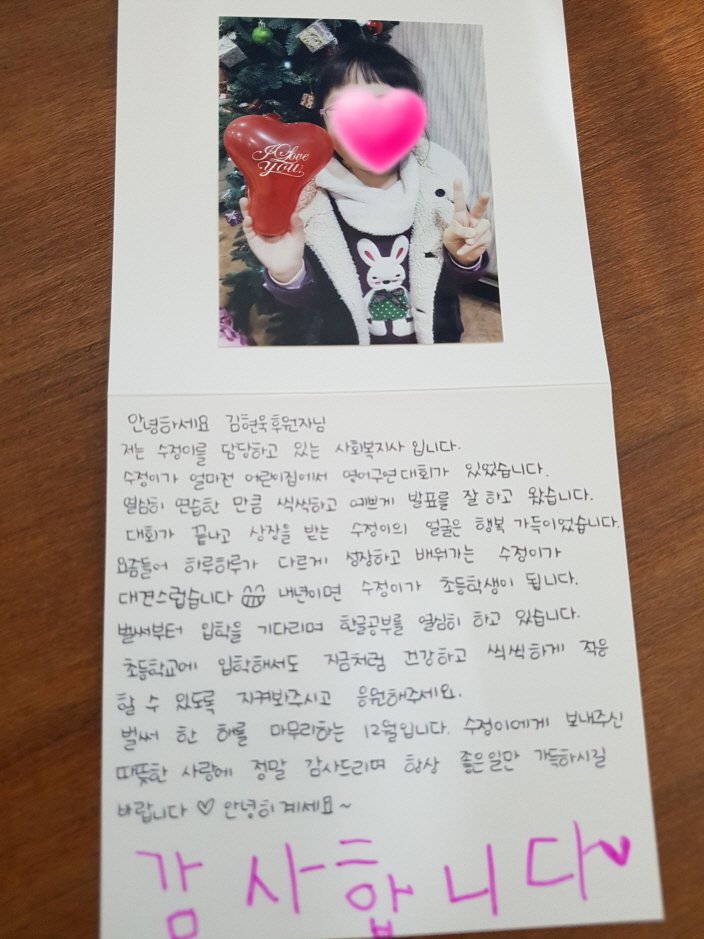 I Love
You
안녕하세요 김현욱후원자님
저는 수정이를 담당하고 있는 사회복지사입니다.
수정이가 얼마전 어린이집에서 영어구연대회가 있었습니다.
열심히 연습한 만큼 씩씩하고 예쁘게 발표를 잘 하고 왔습니다.
대회가 끝나고 상장을 받는 수정이의 얼굴은 행복 가득이었습니다.
요즘들어 하루하루가 다르게 성장하고 배워가는 수정이가
대견스럽습니다 내년이면 수정이가 초등학생이 됩니다.
벌써부터 입학을 기다리며 한글공부를 열심히 하고 있습니다.
초등학교에 입학해서도 지금처럼 건강하고 씩씩하게 적응
할 수 있도록 지켜봐주시고 응원해주세요.
벌써 한 해를 마무리하는 12월입니다. 수정이에게 보내주신
따뜻한 사랑에 정말 감사드리며 항상 좋은일만 가득하시길
바랍니다 ♡ 안녕히계세요~
감사합니다♥